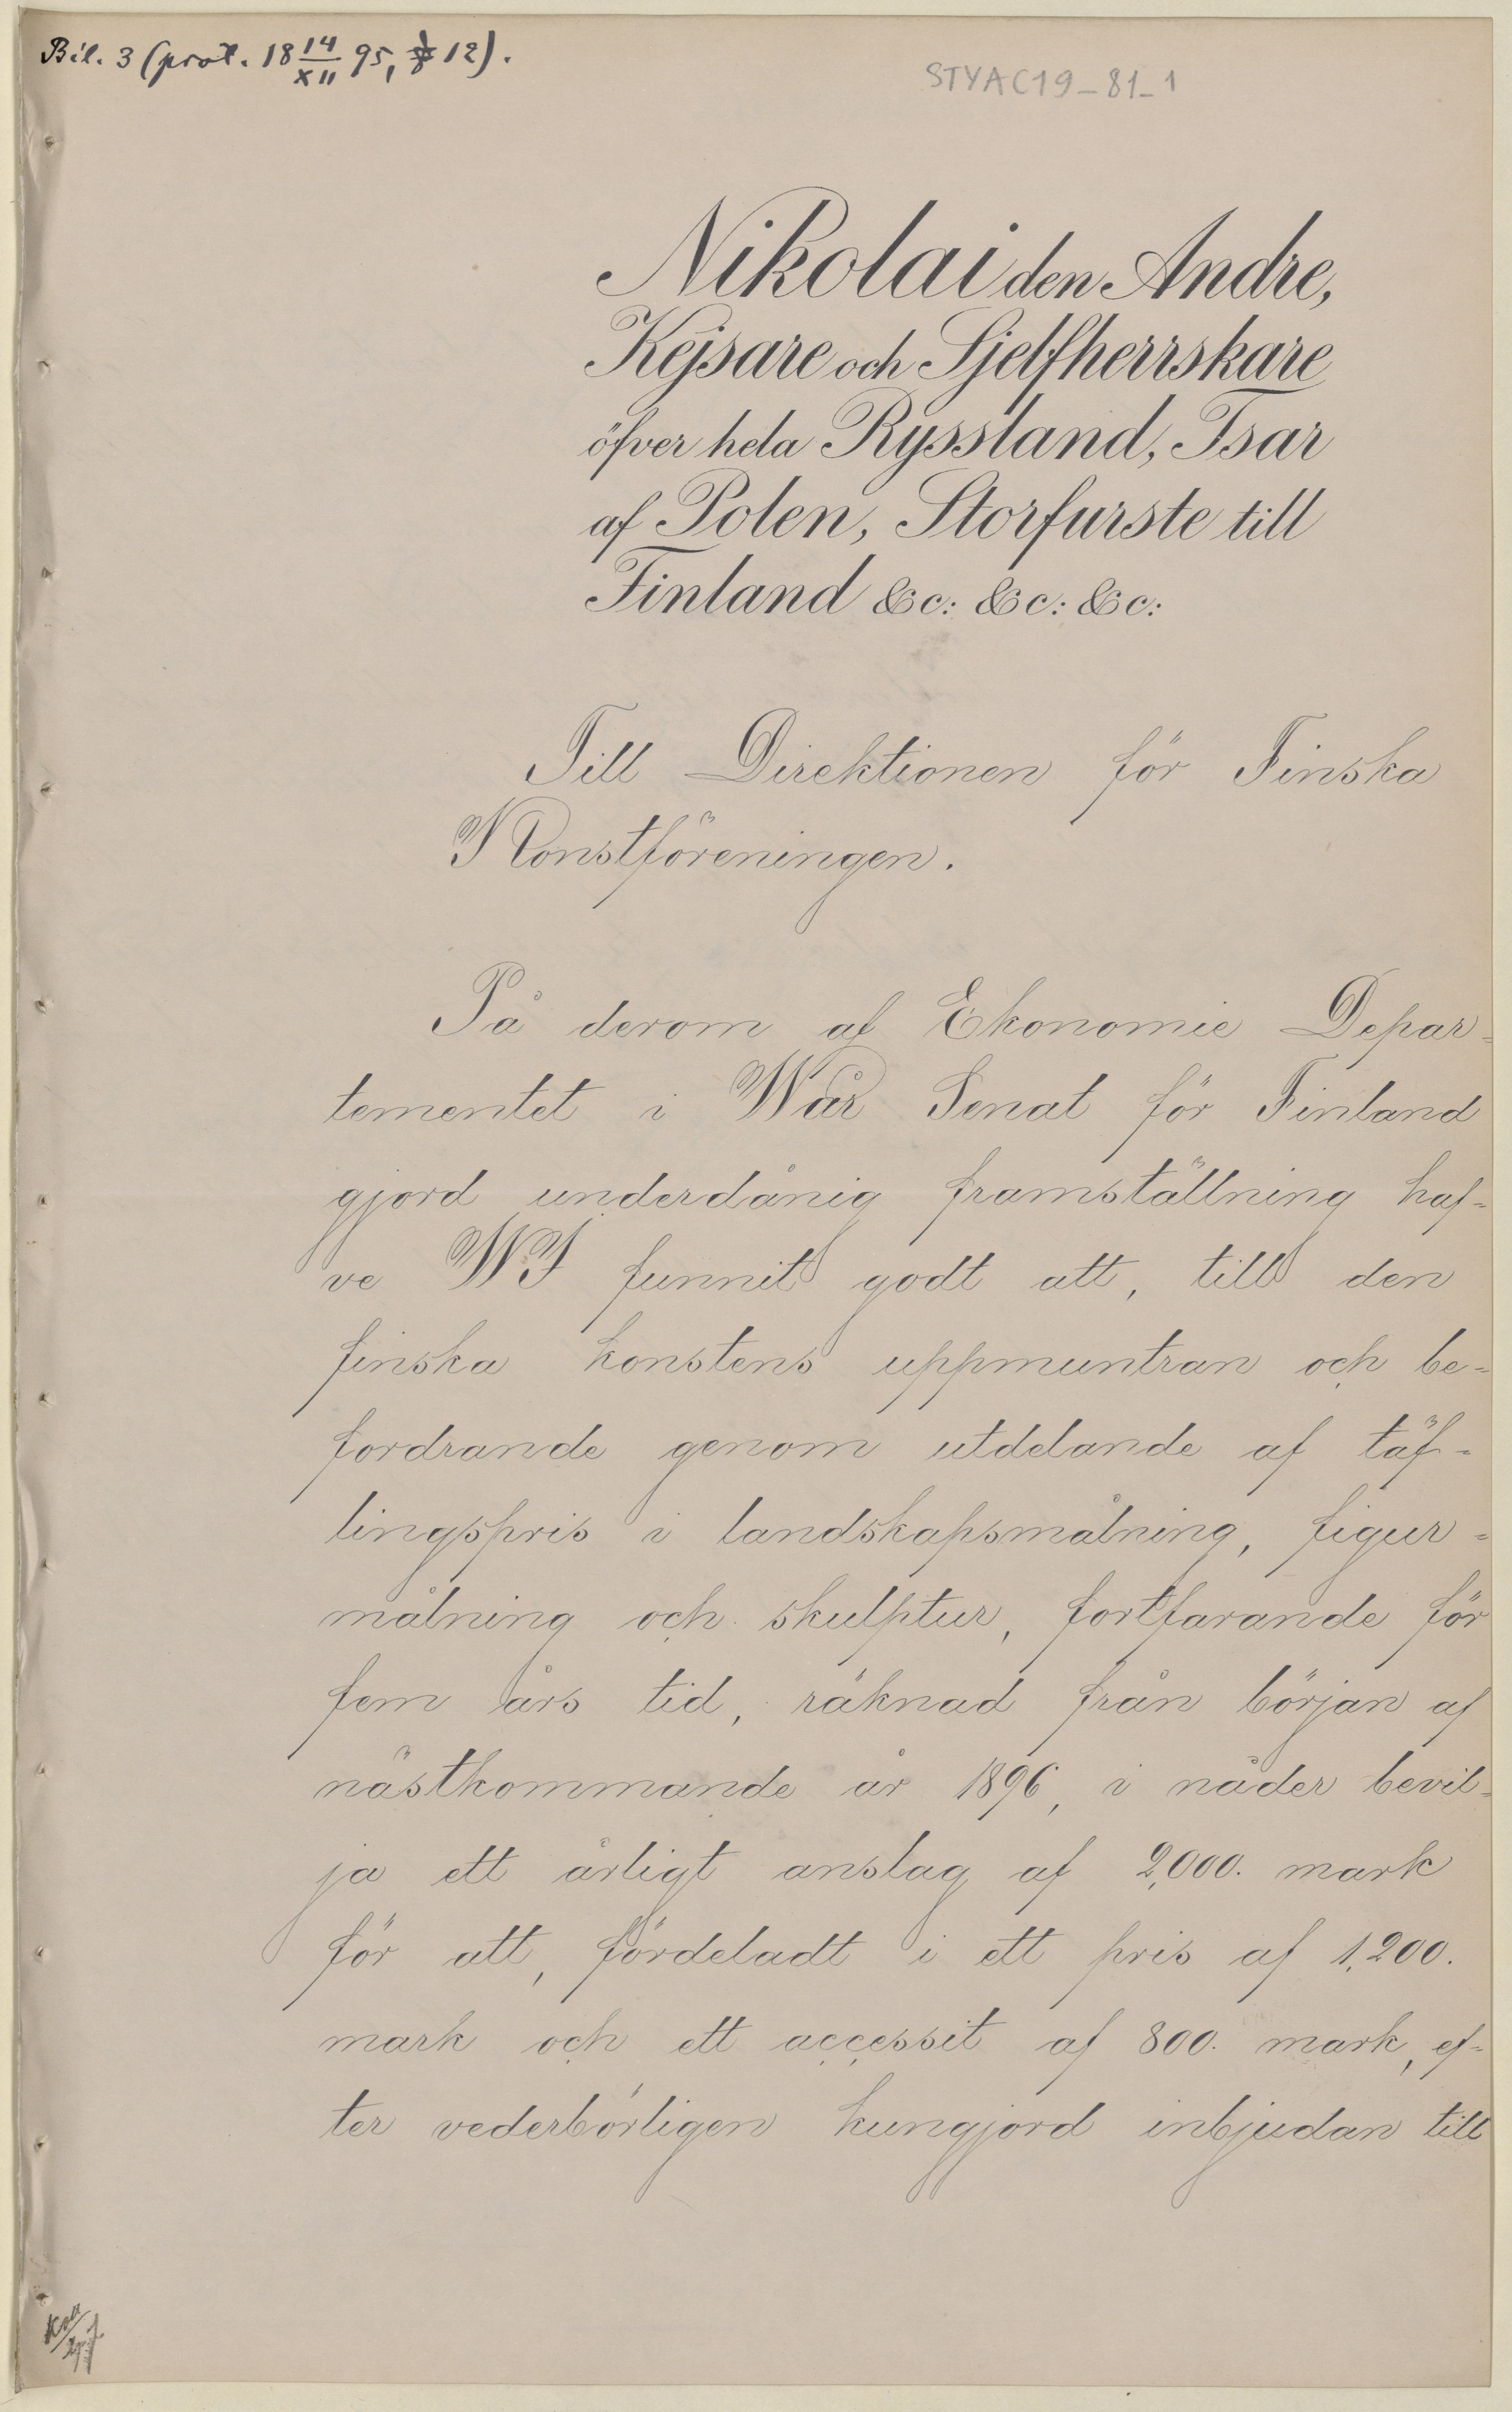 Bil. 3 (prot. 18 14/XII 95, § 12).
STYA C19_81_1
Nikolai den Andre,
Kejsare och Sjelfherrskare
öfver hela Ryssland, Tsar
af Polen, Storfurste till
Finland &c: &c: &c:
Till Direktionen för Finska
Konstföreningen.
På derom af Ekonomie Depar-
tementet i Wår Senat för Finland
gjord underdånig framställning haf-
ve WI funnit godt att, till den
finska konstens uppmuntran och be-
fordrande genom utdelande af täf-
lingspris i landskapsmålning, figur-
målning och skulptur, fortfarande för
fem års tid, räknad från början af
nästkommande år 1896, i nåder bevil-
ja ett årligt anslag af 2,000. mark
för att, fördeladt i ett pris af 1,200.
mark och ett accessit af 800. mark, ef-
ter vederbörligen kungjord inbjudan till